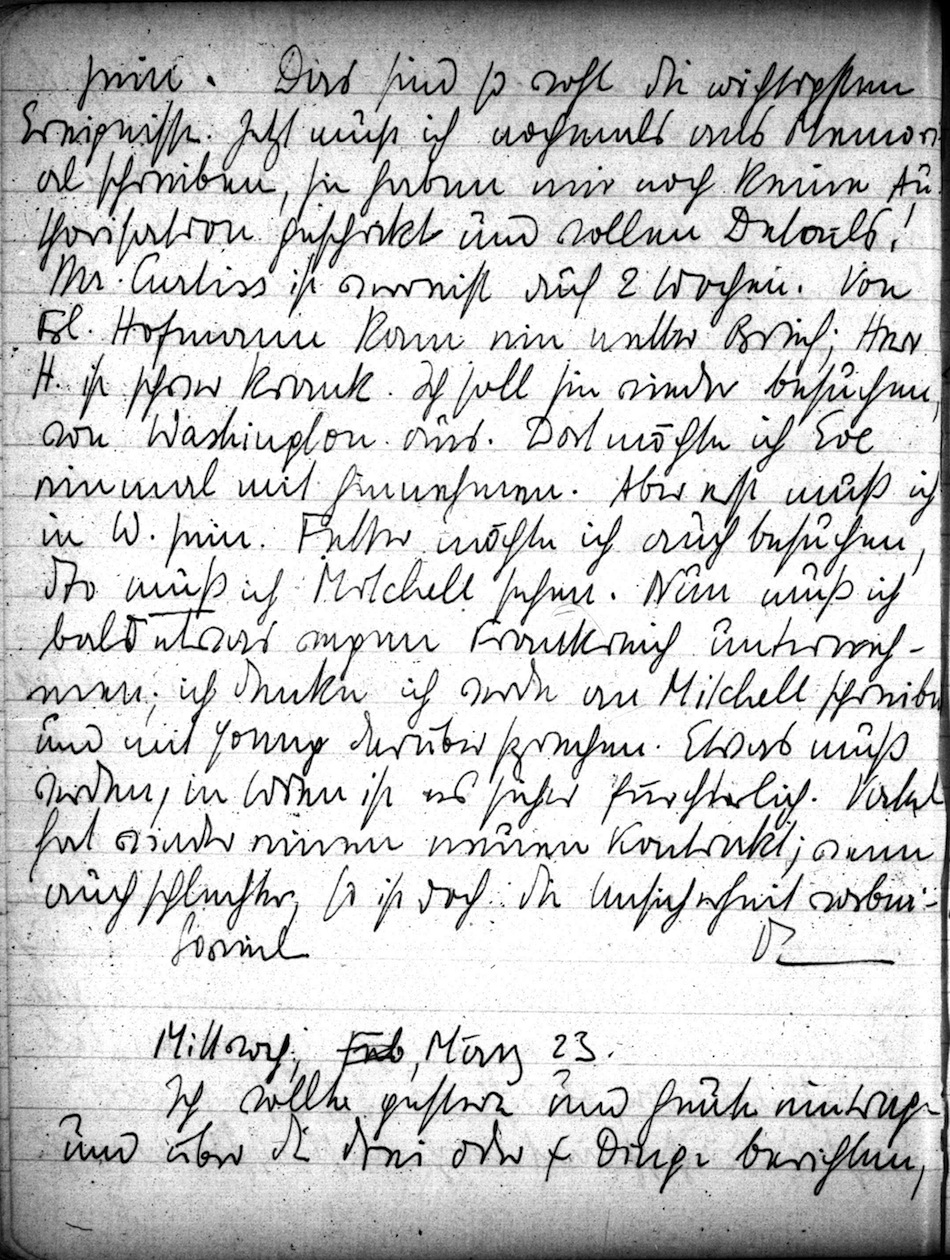 sein. Dies sind so wohl die wichtigsten
Ereignisse. Jetzt muß ich nochmals ans Memori
al schreiben, sie haben mir noch keine Au
thorisation geschickt und wollen Details!
Mr. Curtiss ist verreist auf 2 Wochen. Von
Frl. Hofmann kam ein netter Brief; Herr
H. ist schwer krank. Ich soll sie wieder besuchen,
von Washington aus. Dort möchte ich Eve
einmal mit hinnehmen. Aber erst muß ich
in W. sein. Fetter möchte ich auch besuchen,
dto muß ich Mitchell sehen. Nun muß ich
bald etwas wegen Frankreich unterneh-
men; ich denke ich werde an Mitchell schreiben
und mit Young darüber sprechen. Etwas muß
werden, in Wien ist es sicher fürchterlich.
hat wieder einen neuen Kontrakt; wenn
auch schlechter, so ist doch die Unsicherheit vorbei-
Mittwoch, Feb, März 23.
Ich wollte gestern und heute eintragen
und über die drei oder 4 Dinge berichten,